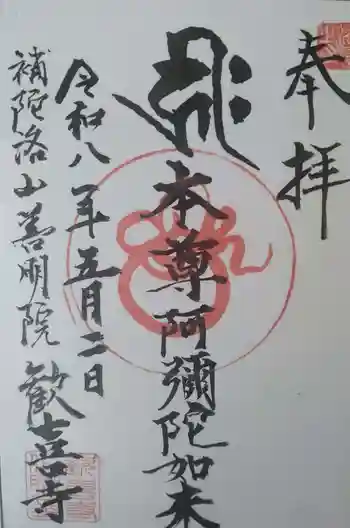 奉拝
本尊阿彌陀如来
令和八年五月二日
補陀洛山善明院 歓喜寺